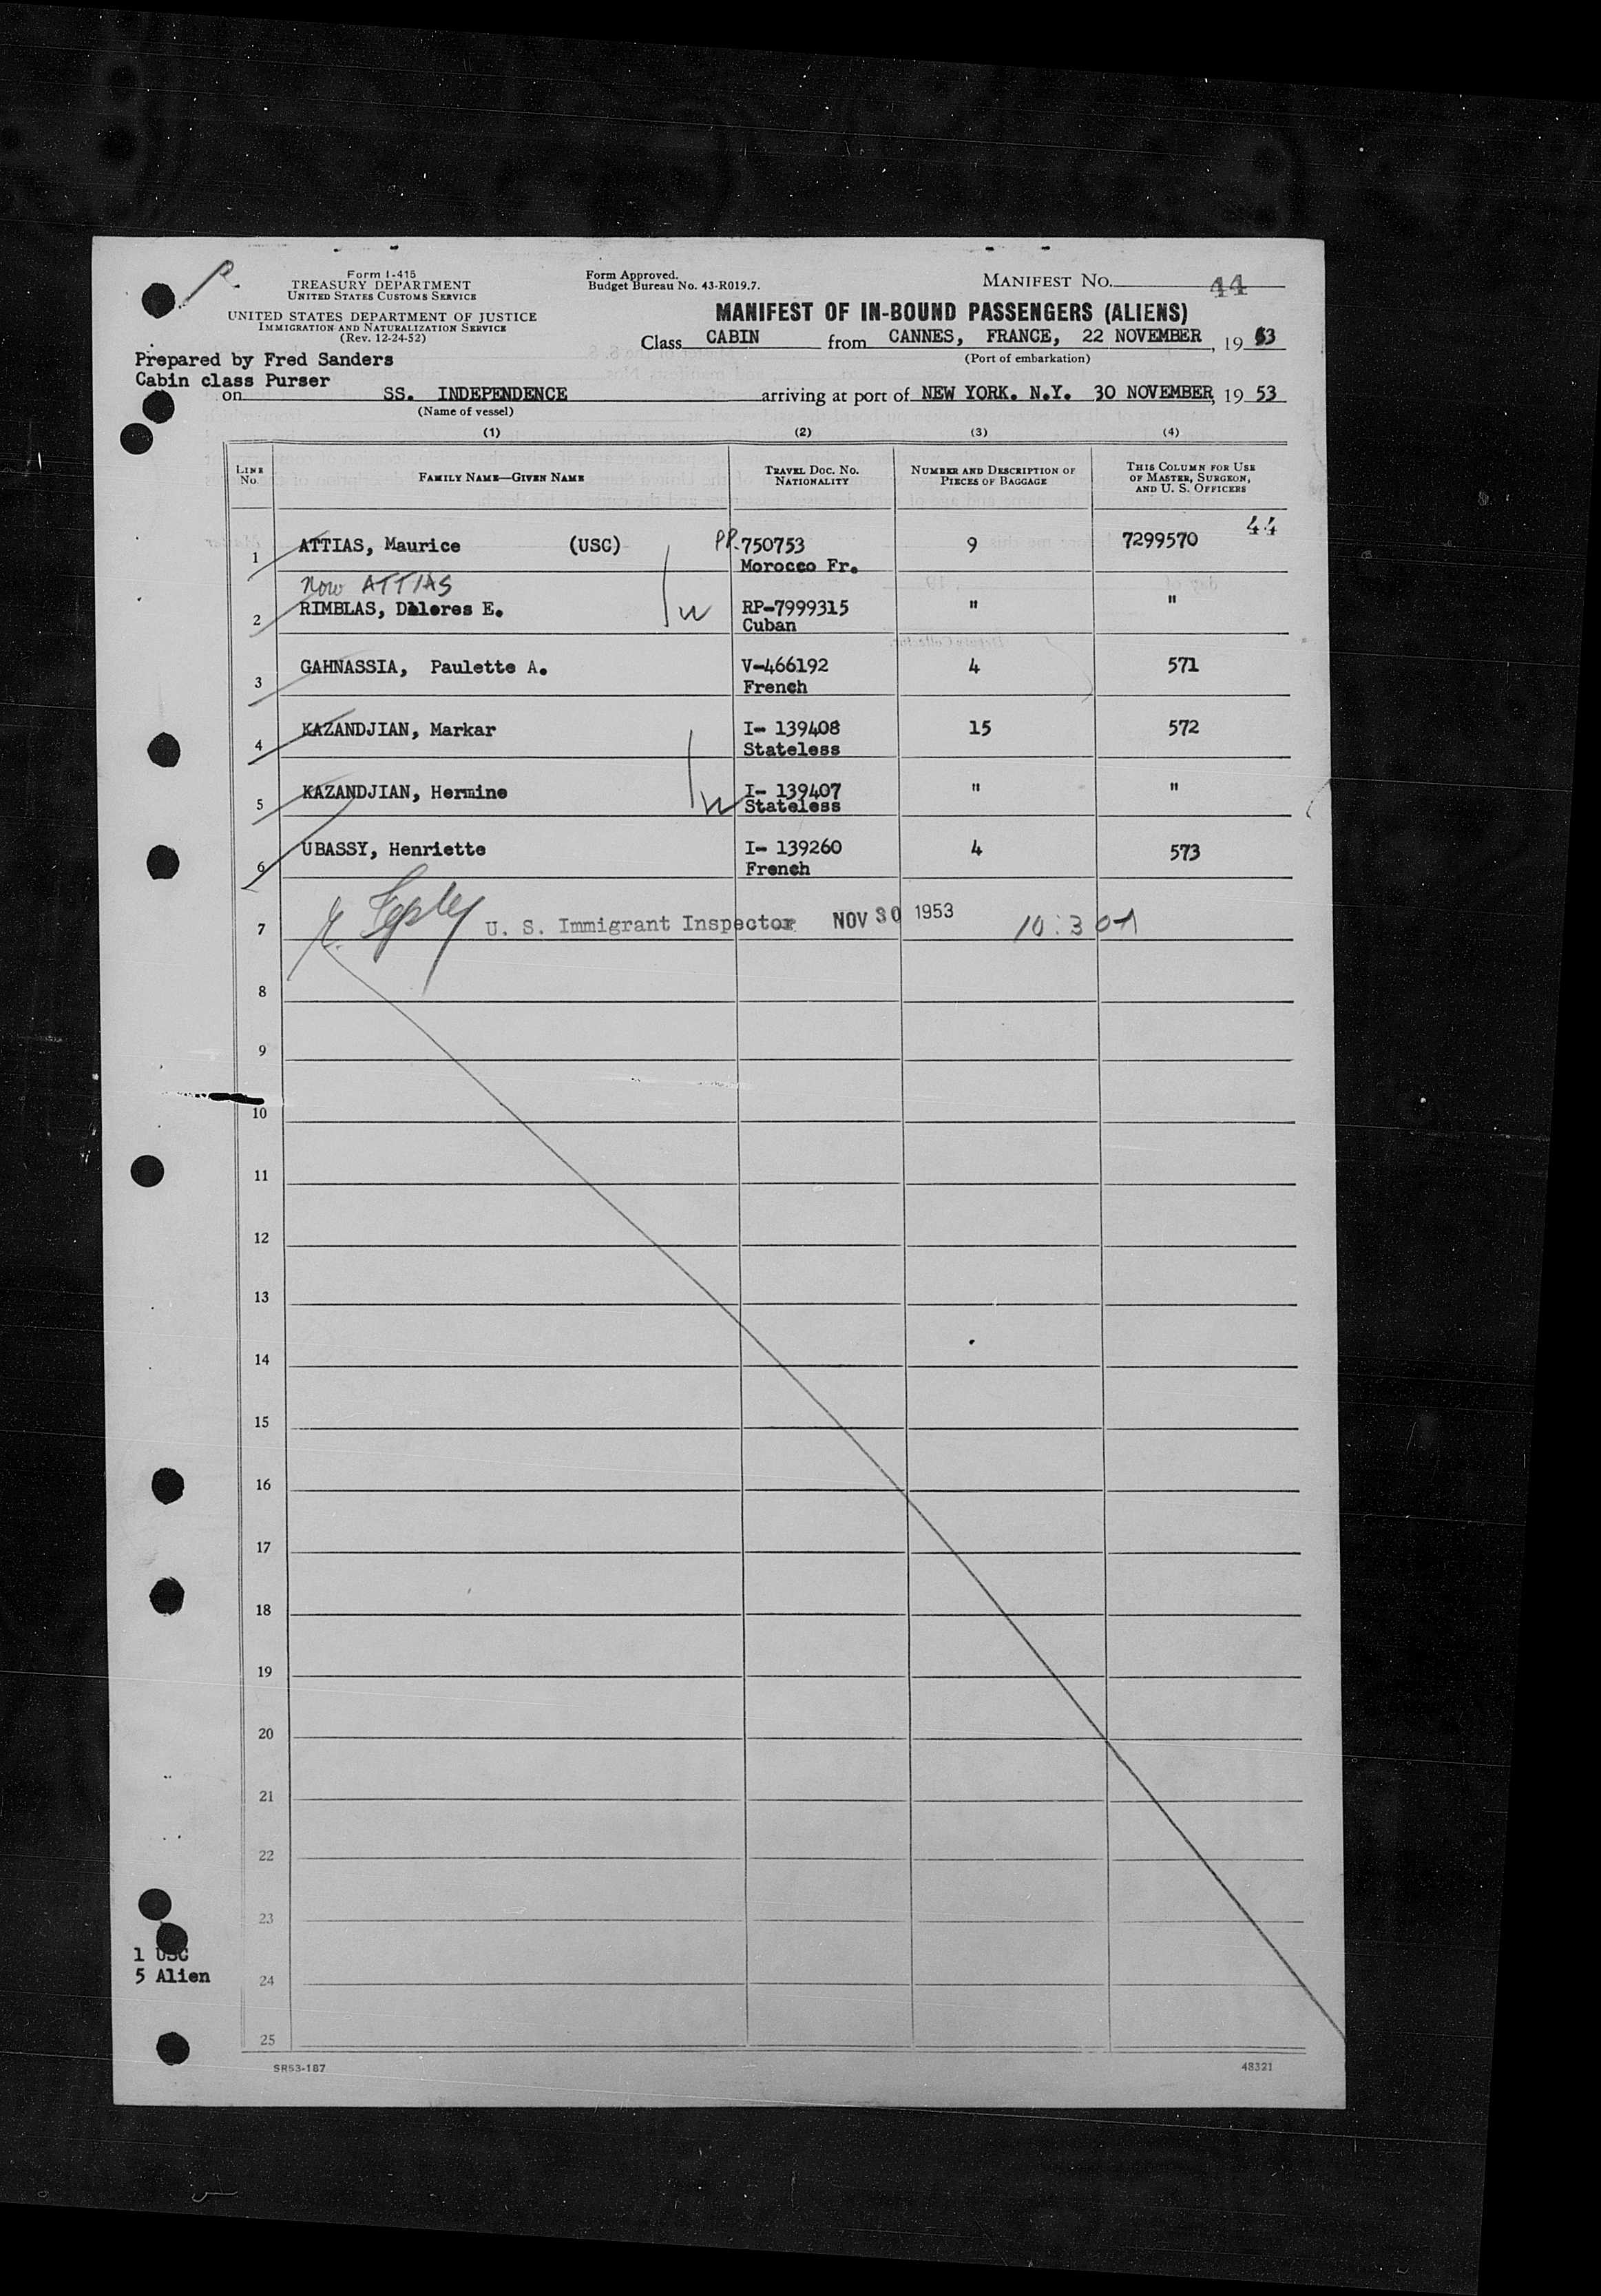 Form I-415
TREASURY DEPARTMENT
UNITED STATES CUSTOMS SERVICE
UNITED STATES DEPARTMENT OF JUSTICE
IMMIGRATION AND NATURALIZATION SERVICE
(Rev. 12-24-52)
Form Approved.
Budget Bureau No. 43-R019.7.
MANIFEST NO. 44
MANIFEST OF IN-BOUND PASSENGERS (ALIENS)
Class CABIN from CANNES, FRANCE, 22 NOVEMBER, 19 53
(Port of embarkation)
Prepared by Fred Sanders
Cabin class Purser
on SS. INDEPENDENCE arriving at port of NEW YORK. N.Y. 30 NOVEMBER, 19 53
(Name of vessel)
(1) (2) (3) (4)
LINE No. FAMILY NAME—GIVEN NAME TRAVEL DOC. NO. NATIONALITY NUMBER AND DESCRIPTION OF PIECES OF BAGGAGE THIS COLUMN FOR USE OF MASTER, SURGEON, AND U. S. OFFICERS
44
1 ATTIAS, Maurice (USC) PP. 750753 9 7299570
Morocco Fr.
Now ATTIAS
2 RIMBLAS, Dolores E. W RP-7999315 " "
Cuban
3 GAHNASSIA, Paulette A. V-466192 4 571
French
4 KAZANDJIAN, Markar I- 139408 15 572
Stateless
5 KAZANDJIAN, Hermine W I- 139407 " "
Stateless
6 UBASSY, Henriette I- 139260 4 573
French
7 U. S. Immigrant Inspector NOV 30 1953
8
9
10
11
12
13
14
15
16
17
18
19
20
21
22
23
1 USC
5 Alien
24
25
SR53-187 48321